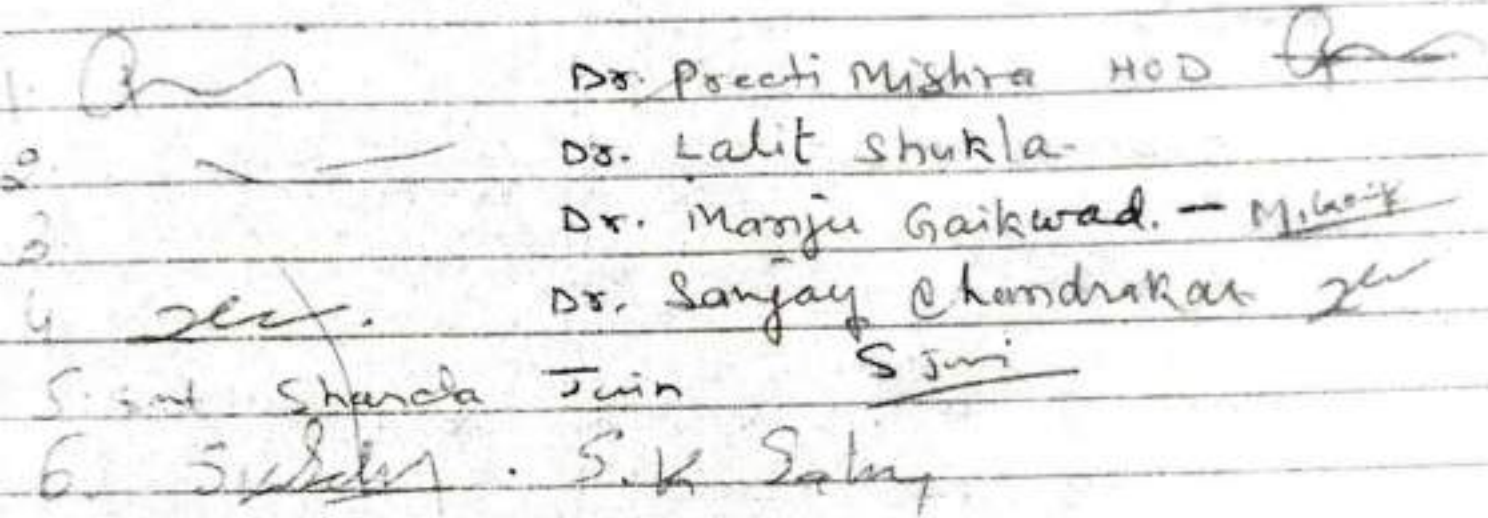 1. Dr. Preeti Mishra HOD
2. Dr. Lalit Shukla
3. Dr. Manju Gaikwad. - M. Gaik
4. Dr. Sanjay Chandrakar
5. Smt Sharda Jain S Jain
6. S.K Sahu